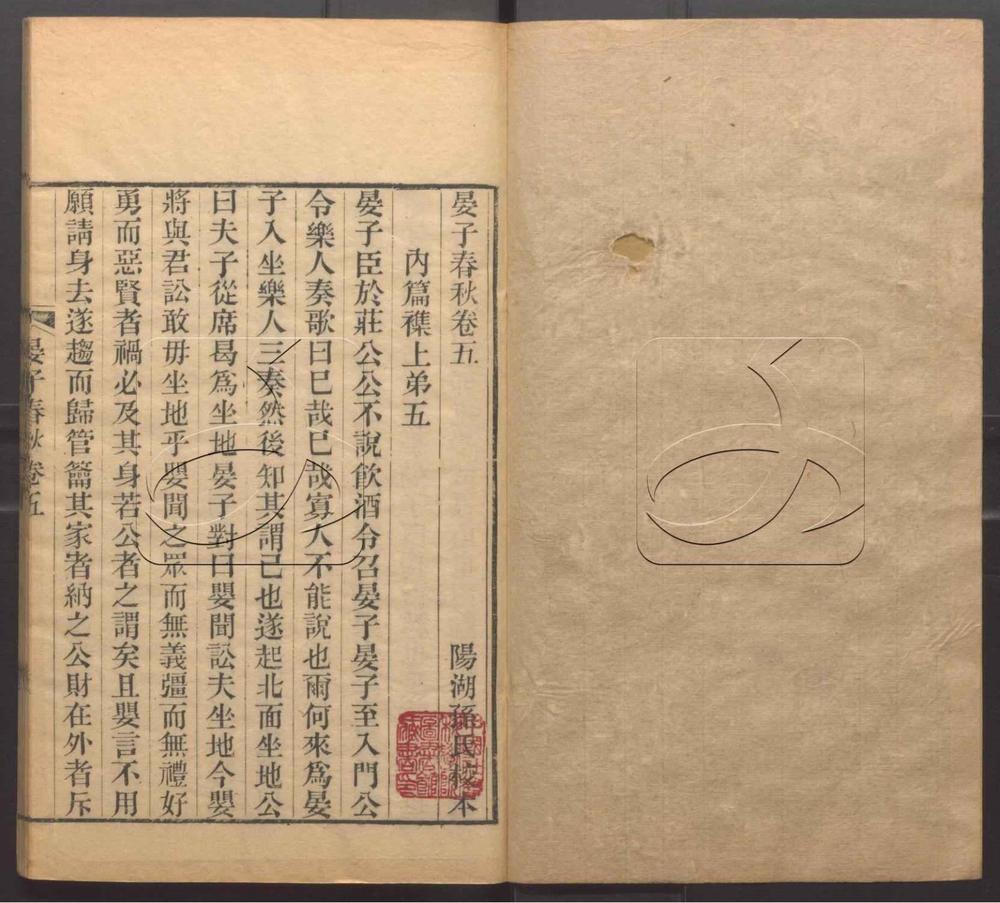 晏子春秋卷五 陽湖孫氏校本
內篇襍上弟五
晏子臣於莊公公不說飲酒令召晏子晏子至入門公
令樂人奏歌曰已哉已哉寡人不能說也爾何來爲晏
子入坐樂人三奏然後知其謂己也遂起北面坐地公
曰夫子從席曷爲坐地晏子對曰嬰聞訟夫坐地今嬰
將與君訟敢毋坐地乎嬰聞之眾而無義彊而無禮好
勇而惡賢者禍必及其身若公者之謂矣且嬰言不用
願請身去遂趨而歸管籥其家者納之公財在外者斥
晏子春秋卷五